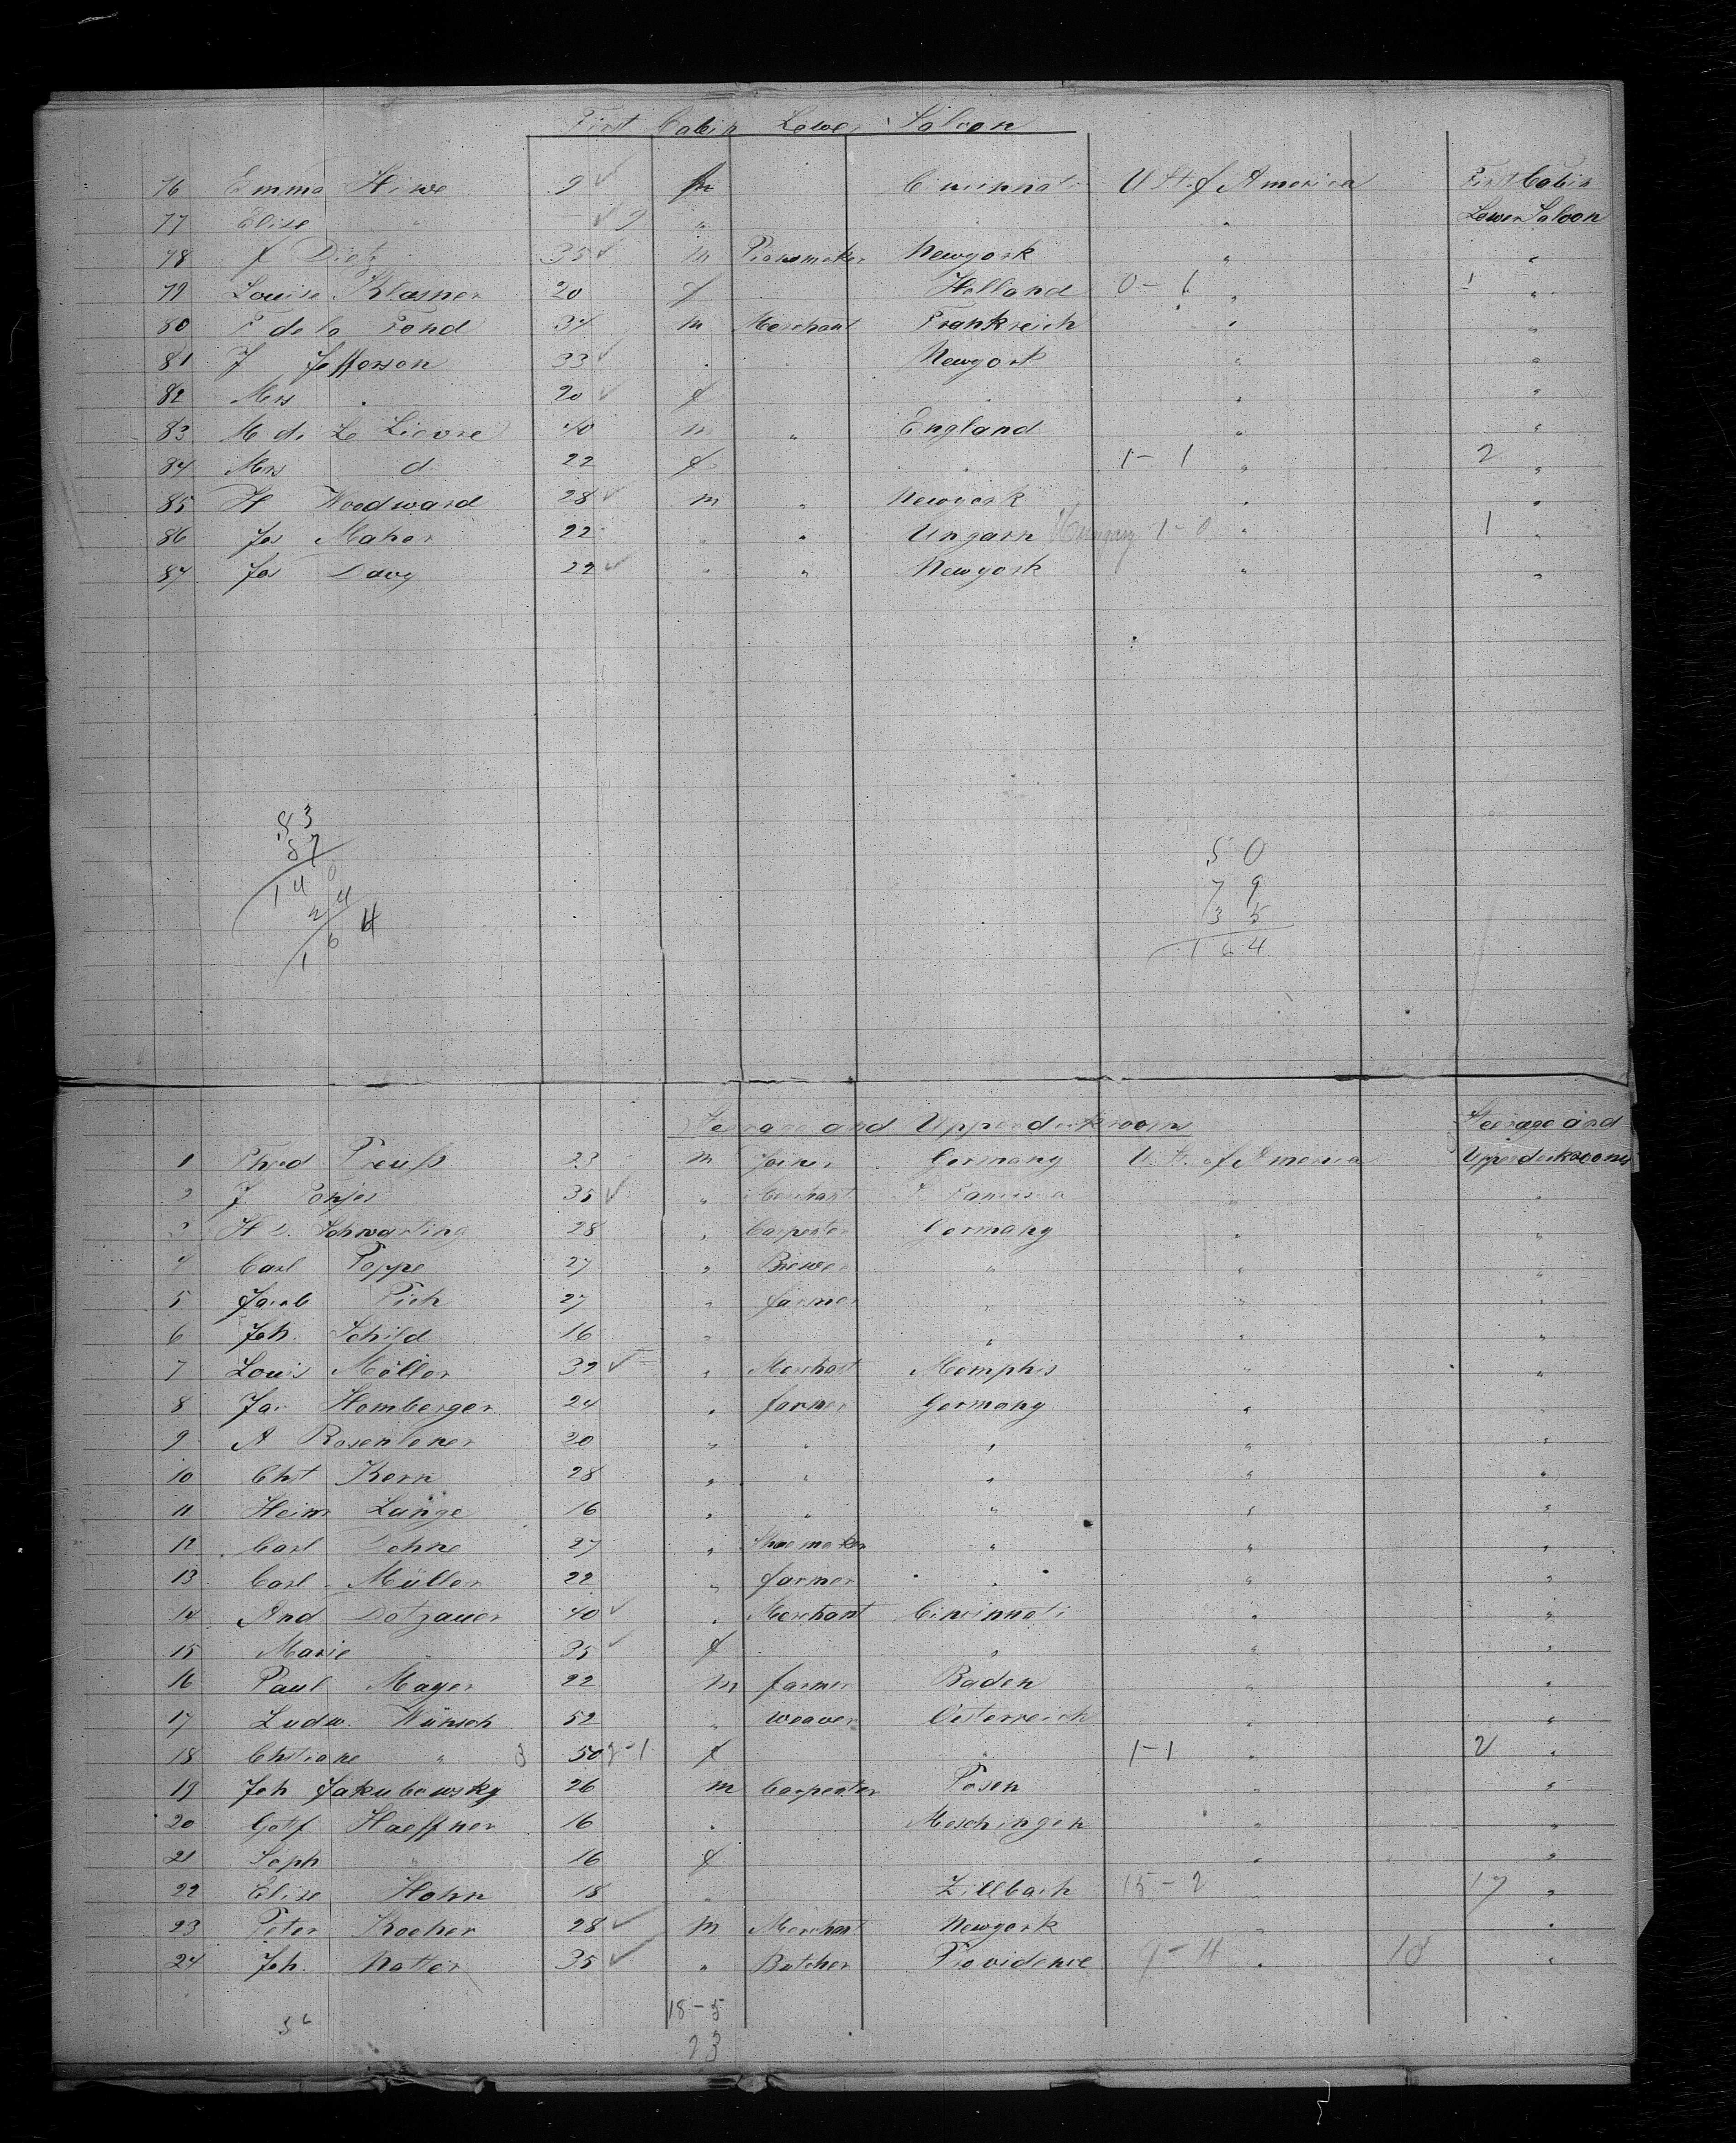 First Cabin Lower Saloon
76 Emma Hiwe 9 ✓ f Cincinnati U St. of America First Cabin
77 Elise " ✓ " " Lower Saloon
78 f Dietz 35 ✓ m Pianomaker Newyork " "
79 Louise Klasner 20 f Holland 0-1 " 1 "
80 F de la Fond 34 m Merchant Frankreich " "
81 J Jefferson 33 ✓ " " Newyork " "
82 Mrs " 20 ✓ f " " "
83 M de Le Lievre 40 m " England " "
84 Mrs d 22 f " 1-1 " 2 "
85 H Woodward 28 ✓ m " Newyork " "
86 Jos Maher 22 " " Ungarn Hungary 1-0 " 1 "
87 Jos Davy 22 ✓ " " Newyork " "
83
87
50
79
35
164
Steerage and Upperdeckrooms Steerage and
1 Fred Preuß 23 m Joiner Germany U. St. of America Upperdeckrooms
2 J Tonjes 35 ✓ " Merchant " "
3 H D. Schwarting 28 " Carpenter Germany " "
4 Carl Poppe 27 " Brewer " " "
5 Jacob Pich 27 " farmer " " "
6 Joh. Schild 16 " " " "
7 Louis Möller 32 ✓ " Merchant Memphis " "
8 Jac Homberger 24 " farmer Germany " "
9 A Rosenlener 20 " " " " "
10 Chst Kern 28 " " " " "
11 Heinr Lange 16 " " " " "
12 Carl Dohne 27 " Shoemaker " " "
13 Carl Müller 22 " farmer " " "
14 And Dotzauer 40 ✓ " Merchant Cincinnati " "
15 Marie " 35 ✓ f " " "
16 Paul Mayer 22 m farmer Baden " "
17 Ludw. Wünsch 52 " weaver Oisterreich " "
18 Chstiane " 50 f " 1-1 " 2 "
19 Joh Jakubowsky 26 m Carpenter Posen " "
20 Gotf Haeffner 16 " Meschingen " "
21 Soph " 16 f " "
22 Elise Hahn 18 " Zillbach 15-2 " 17 "
23 Peter Kocher 28 ✓ m Merchant Newyork " "
24 Joh. Natter 35 ✓ " Butcher Providence " "
18-5
23